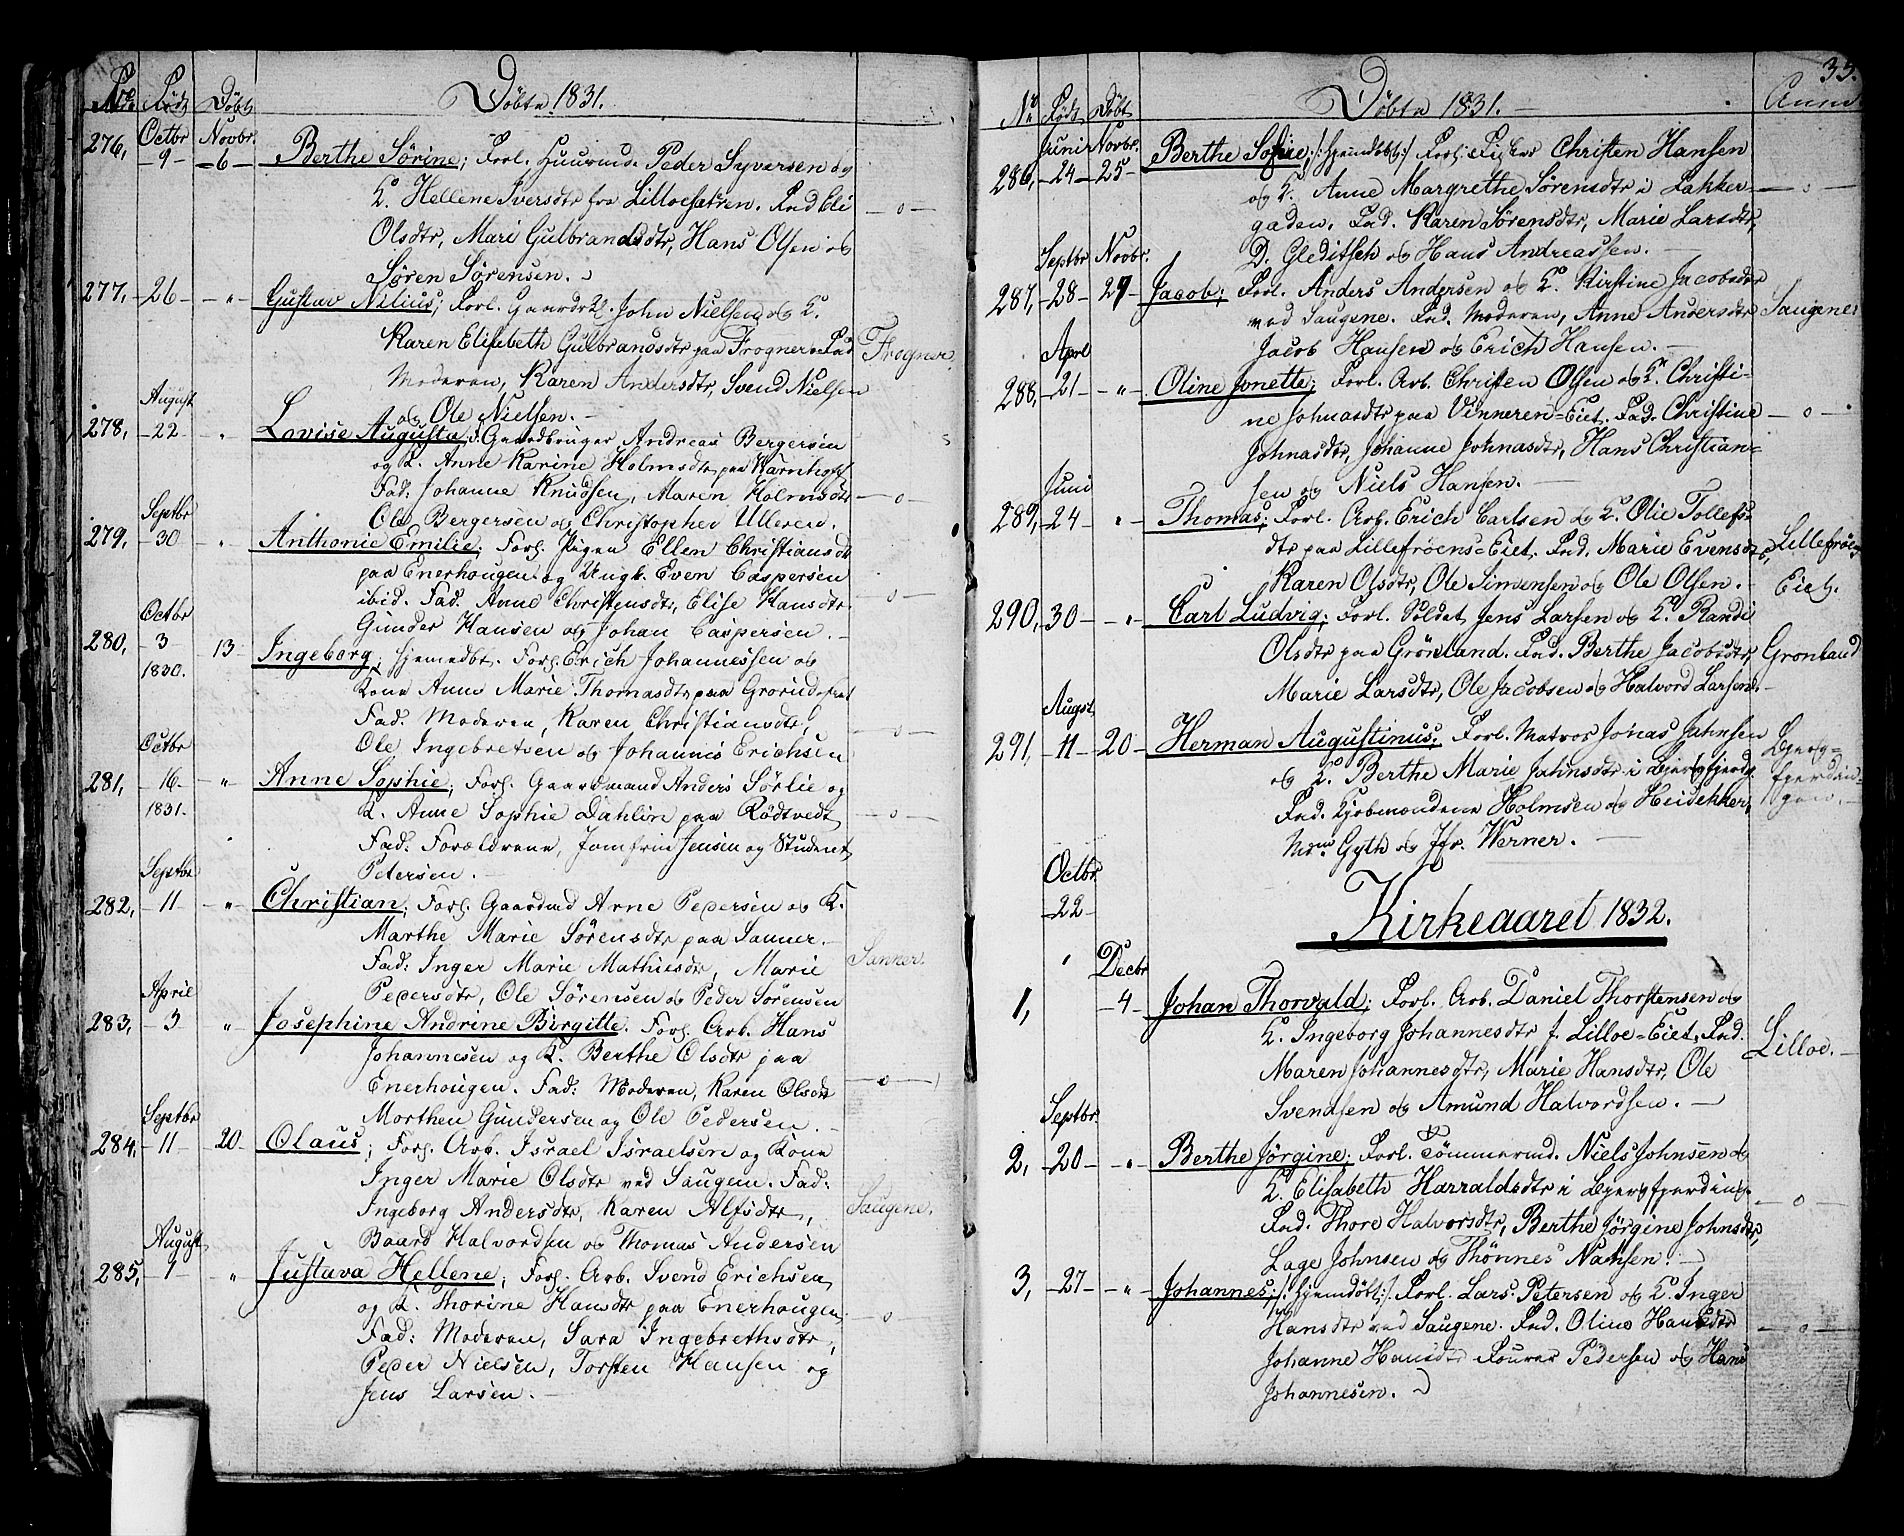 No. Født Døbt Døbte 1831.
276, Octbr 9 Novbr. 6 Berthe Sørine; Forl. Huusmd. Peder Syversen og
K. Hellene Iversdtr fra Lilloesætren. Fad Eli
Olsdtr, Mari Gulbrandsdtr, Hans Olsen og
Søren Sørensen.
277, 26 " Gustav Nilius; Forl. Gaardbr. John Nielsen og K.
Karen Elisebeth Gulbrandsdtr paa Frogner. Fad
Moderen, Karen Andersdtr, Svend Nielsen
og Ole Nielsen. Frogner.
278, August 22 " Lovise Augusta; F. Gaardbruger Andreas Bergersen
og K. Anne Karine Holmsdtr paa
Fad: Johanne Knudsen, Maren Holmsdtr
Ole Bergersen og Christopher Ulleren.
279, Septbr 30 " Anthonie Emilie; Forl. Pigen Ellen Christiansdtr
paa Enerhougen og Ungk. Even Caspersen
ibid. Fad. Anne Christensdtr, Elise Hansdtr
Gunder Hansen og Johan Caspersen.
280, Octbr 3 1830. 13 Ingeborg; hjemedbt. Forl. Erich Johannessen og
Kone Anne Marie Thomasdtr paa Grorud
Fad. Moderen, Karen Christiansdtr,
Ole Ingebretsen og Johannes Erichsen
281, Octbr 16 1831. " Anne Sophie; Forl. Gaardmand Anders Sørlie og
K. Anne Sophie Dahlin paa Rødtvedt
Fad: Forældrene, Jomfrue Jensen og Student
Petersen.
282, Septbr 11 " Christian; Forl. Gaardmd Arne Pedersen og K.
Marthe Marie Sørensdtr paa Sanner.
Fad: Inger Marie Mathiesdtr, Marie
Pedersdtr, Ole Sørensen og Peder Sørensen Sanner.
283, April 3 " Josephine Andrine Birgitte. Forl. Arb. Hans
Johannesen og K. Berthe Olsdtr paa
Enerhougen. Fad: Moderen, Karen Olsdtr
Morthen Gundersen og Ole Pedersen.
284, Septbr 11 20 Olaus; Forl. Arb. Israel Israelsen og Kone
Inger Marie Olsdtr ved Saugene. Fad:
Ingeborg Andersdtr, Karen Alfsdtr,
Baard Halvordsen og Thomas Andersen Saugene.
285, August 1 " Justava Hellene; Forl. Arb. Svend Erichsen
og K. Thorine Hansdtr paa Enerhougen
Fad: Moderen, Sara Ingebrethsdtr,
Peder Nielsen, Torsten Hansen og
Jens Larsen.
35.
No. Født Døbt Døbte 1831. Anm
286, Juni 24 Novbr. 25 Berthe Sofie; /: hjemdøbt :/ Forl: Fisker Christen Hansen
og K. Anne Margrethe Sørensdtr i Lakker-
gaden. Fad. Karen Sørensdtr, Marie Larsdtr,
D. Gleditsch og Hans Andreassen.
287, Septbr 28 Novbr. 27 Jacob; Forl. Anders Andersen og K. Kirstine Jacobsdtr
ved Saugene. Fad. Moderen, Anne Andersdtr
Jacob Hansen og Erich Hansen. Saugene
288, Aprl 21 " Oline Jonette; Forl. Arb. Christen Olsen og K. Christi-
ne Johnasdtr paa Vinneren=Eiet. Fad. Christine
Johnasdtr, Johanne Johnasdtr, Hans Christian-
sen og Niels Hansen.
289, Juni 24 " Thomas; Forl. Arb. Erich Carlsen og K. Olie Tollefs-
dtr paa Lillefrøens=Eiet. Fad. Marie Evensdtr,
Karen Olsdtr, Ole Simensen og Ole Olsen. Lillefrøens Eiet.
290, 30 " Carl Ludvig; Forl. Soldat Jens Larsen og K. Randi
Olsdtr paa Grönland. Fad. Berthe Jacobsdtr,
Marie Larsdtr, Ole Jacobsen og Halvord Larsen. Gronland
291, Augst. 11 20 Herman Augustinus; Forl. Matros Jonas Jahnsen
og K. Berthe Marie Jahnsdtr i Bjergfjerdg
Fad. Kjøbmændene Holmsen og Heidekker,
Mdm Gyth og Jfr. Werner. Bjerg-
fjerdin-
gen.
Kirkeaaret 1832.
1, Octbr. 22 Decbr 4 Johan Thorvald; Forl. Arb. Daniel Thorstensen og
K. Ingeborg Johannesdtr f. Lilloe=Eiet. Fad.
Maren Johannesdtr, Marie Hansdtr, Ole
Svendsen og Amund Halvordsen. Lilloe.
2, Septbr. 20 " Berthe Jørgine; Forl. Tömmermd. Niels Johnsen og
K. Elisabeth Harraldsdtr i Bjergfjerding.
Fad. Thore Halvorsdtr, Berthe Jørgine Johnsdtr,
Lage Johnsen og Thönnes Nansen.
3, 27 " Johannes; /: hjemdøbt :/ Forl. Lars Petersen og K. Inger
Hansdtr ved Saugene. Fad. Oline Hansdtr
Johanne Hansdtr Fourer Pedersen og Hans
Johannesen.